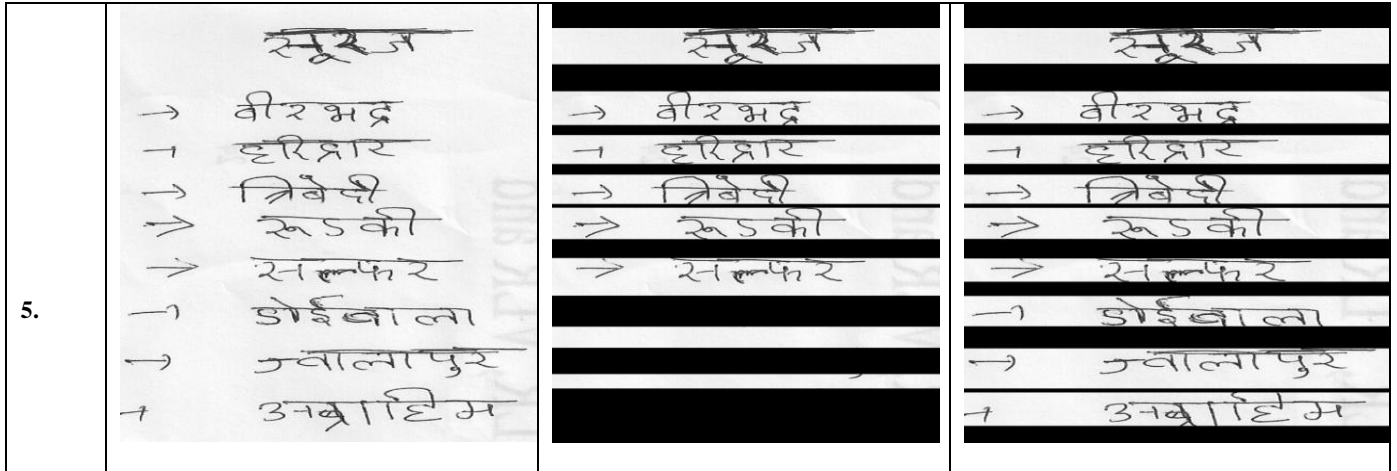 5.
सूरज
→ वीरभद्र
→ हरिद्वार
→ त्रिबेदी
→ रूडकी
→ सल्फर
→ डोईबाला
→ ज्वालापुर
→ अब्राहिम
सूरज
→ वीरभद्र
→ हरिद्वार
→ त्रिबेदी
→ रूडकी
→ सल्फर
सूरज
→ वीरभद्र
→ हरिद्वार
→ त्रिबेदी
→ रूडकी
→ सल्फर
→ डोईबाला
→ ज्वालापुर
→ अब्राहिम